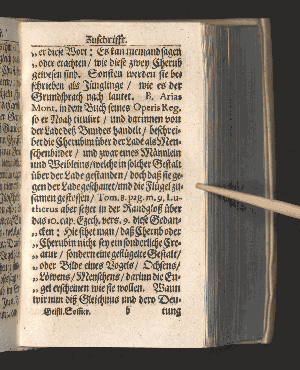 Zuschrifft.
„ er diese Wort: Es kan niemand sagen
„ oder erachten / wie diese zwey Cherub
gewesen sind. Sonsten werden sie be-
schrieben als Jünglinge / wie es der
Grundsprach nach lautet. B. Arias
Mont. in dem Buch seines Operis Reg.
so er Noah tituliret / und darinnen von
der Lade deß Bundes handelt / beschrei-
bet die Cherubim über der Lade als Men-
schenbilder / und zwar eines Männleins
und Weibleins / welche in solcher Gestalt
über der Lade gestanden / doch daß sie ge-
gen der Lade geschauet / und die Flügel zu-
samen gestossen / Tom. 8. pag. m. 9. Lu-
therus aber setzet in der Randgloß über
das 10. cap. Ezech. vers. 9. diese Gedan-
cken: Hie sihet man / daß Cherub oder
„ Cherubim nicht sey ein sonderliche Cre-
„ atur / sondern eine geflügelte Gestalt /
„ oder Bilde eines Vogels / Ochsens /
„ Löwens / Menschens / darinn die En-
„ gel erscheinen wie sie wollen. Wann
wir nun diß Gleichnus und dero Deu-
Geistl. b tung